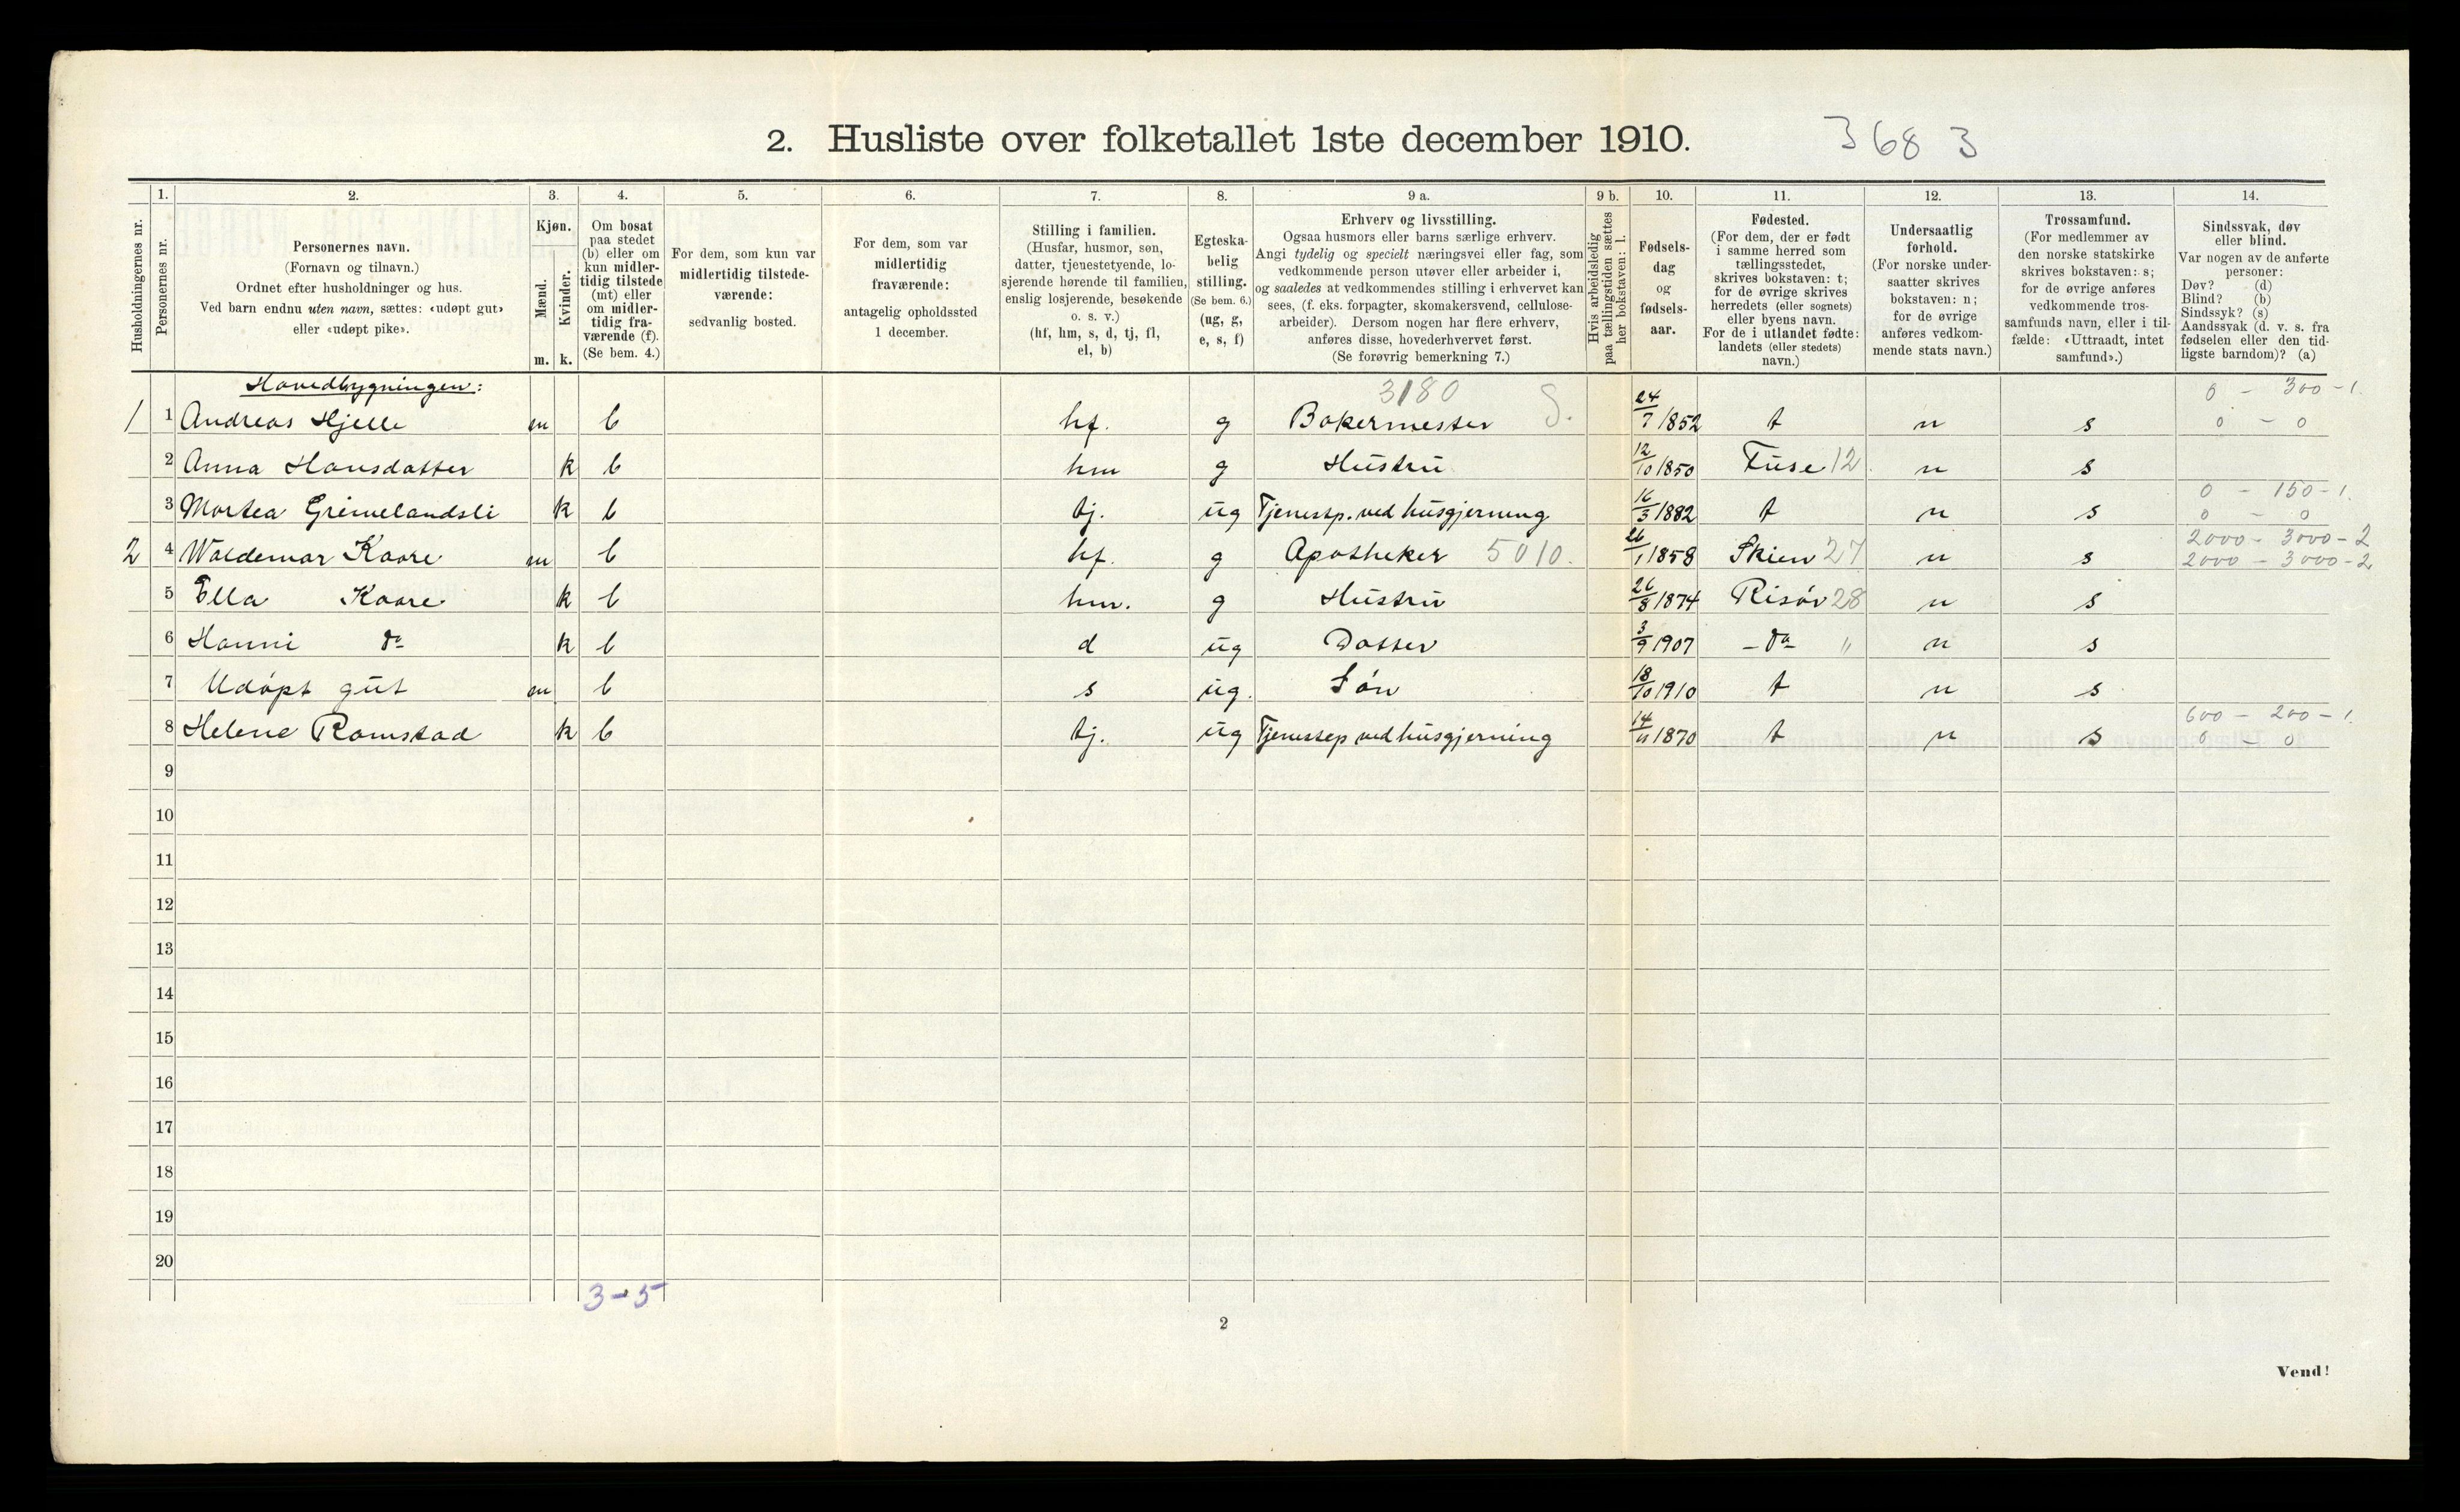 2. Husliste over folketallet 1ste december 1910.
3683
Husholdningernes nr.
1.
Personernes nr.
2.
Personernes navn.
(Fornavn og tilnavn.)
Ordnet efter husholdninger og hus.
Ved barn endnu uten navn, sættes: «udøpt gut»
eller «udøpt pike».
3.
Kjøn.
Mænd.
Kvinder.
m. k.
4.
Om bosat
paa stedet
(b) eller om
kun midler-
tidig tilstede
(mt) eller
om midler-
tidig fra-
værende (f).
(Se bem. 4.)
5.
For dem, som kun var
midlertidig tilstede-
værende:
sedvanlig bosted.
6.
For dem, som var
midlertidig
fraværende:
antagelig opholdssted
1 december.
7.
Stilling i familien.
(Husfar, husmor, søn,
datter, tjenestetyende, lo-
sjerende hørende til familien,
enslig losjerende, besøkende
o. s. v.)
(hf, hm, s, d, tj, fl,
el, b)
8.
Egteska-
belig
stilling.
(Se bem. 6.)
(ug, g,
e, s, f)
9 a.
Erhverv og livsstilling.
Ogsaa husmors eller barns særlige erhverv.
Angi tydelig og specielt næringsvei eller fag, som
vedkommende person utøver eller arbeider i,
og saaledes at vedkommendes stilling i erhvervet kan
sees, (f. eks. forpagter, skomakersvend, cellulose-
arbeider). Dersom nogen har flere erhverv,
anføres disse, hovederhvervet først.
(Se forøvrig bemerkning 7.)
9 b.
Hvis arbeidsledig
paa tællingstiden sættes
her bokstaven: l.
10.
Fødsels-
dag
og
fødsels-
aar.
11.
Fødested.
(For dem, der er født
i samme herred som
tællingsstedet,
skrives bokstaven: t;
for de øvrige skrives
herredets (eller sognets)
eller byens navn.
For de i utlandet fødte:
landets (eller stedets)
navn.)
12.
Undersaatlig
forhold.
(For norske under-
saatter skrives
bokstaven: n;
for de øvrige
anføres vedkom-
mende stats navn.)
13.
Trossamfund.
(For medlemmer av
den norske statskirke
skrives bokstaven: s;
for de øvrige anføres
vedkommende tros-
samfunds navn, eller i til-
fælde: «Uttraadt, intet
samfund».)
14.
Sindssvak, døv
eller blind.
Var nogen av de anførte
personer:
Døv? (d)
Blind? (b)
Sindssyk? (s)
Aandssvak (d. v. s. fra
fødselen eller den tid-
ligste barndom)? (a)
Hovedbygningen: 3180 0 - 300 - 1.
1 1 Andreas Hjelle m b hf. g Bakermester S. 24/7 1852 t n s 0 - 0
2 Anna Hansdatter k b hm g Hustru 12/10 1850 Fuse 12 n s
0 - 150 - 1.
3 Martea Grimelandsli k b tj. ug Tjenestp. ved husgjerning 16/3 1882 t n s 0 - 0
2000 - 3000 - 2
2 4 Waldemar Kaare m b hf. g Apotheker 5010. 26/1 1858 Skien 27 n s 2000 - 3000 - 2
5 Ella Kaare k b hm. g Hustru 26/8 1874 Risør 28 n s
6 Hanni do k b d ug Datter 3/9 1907 - do - " n s
7 Udøpt gut m b s ug. Søn 18/10 1910 t n s
600 - 200 - 1.
8 Helene Ramstad k b tj. ug Tjenestep ved husgjerning 14/11 1870 t n s 0 - 0
9
10
11
12
13
14
15
16
17
18
19
20
3-5
2
Vend!